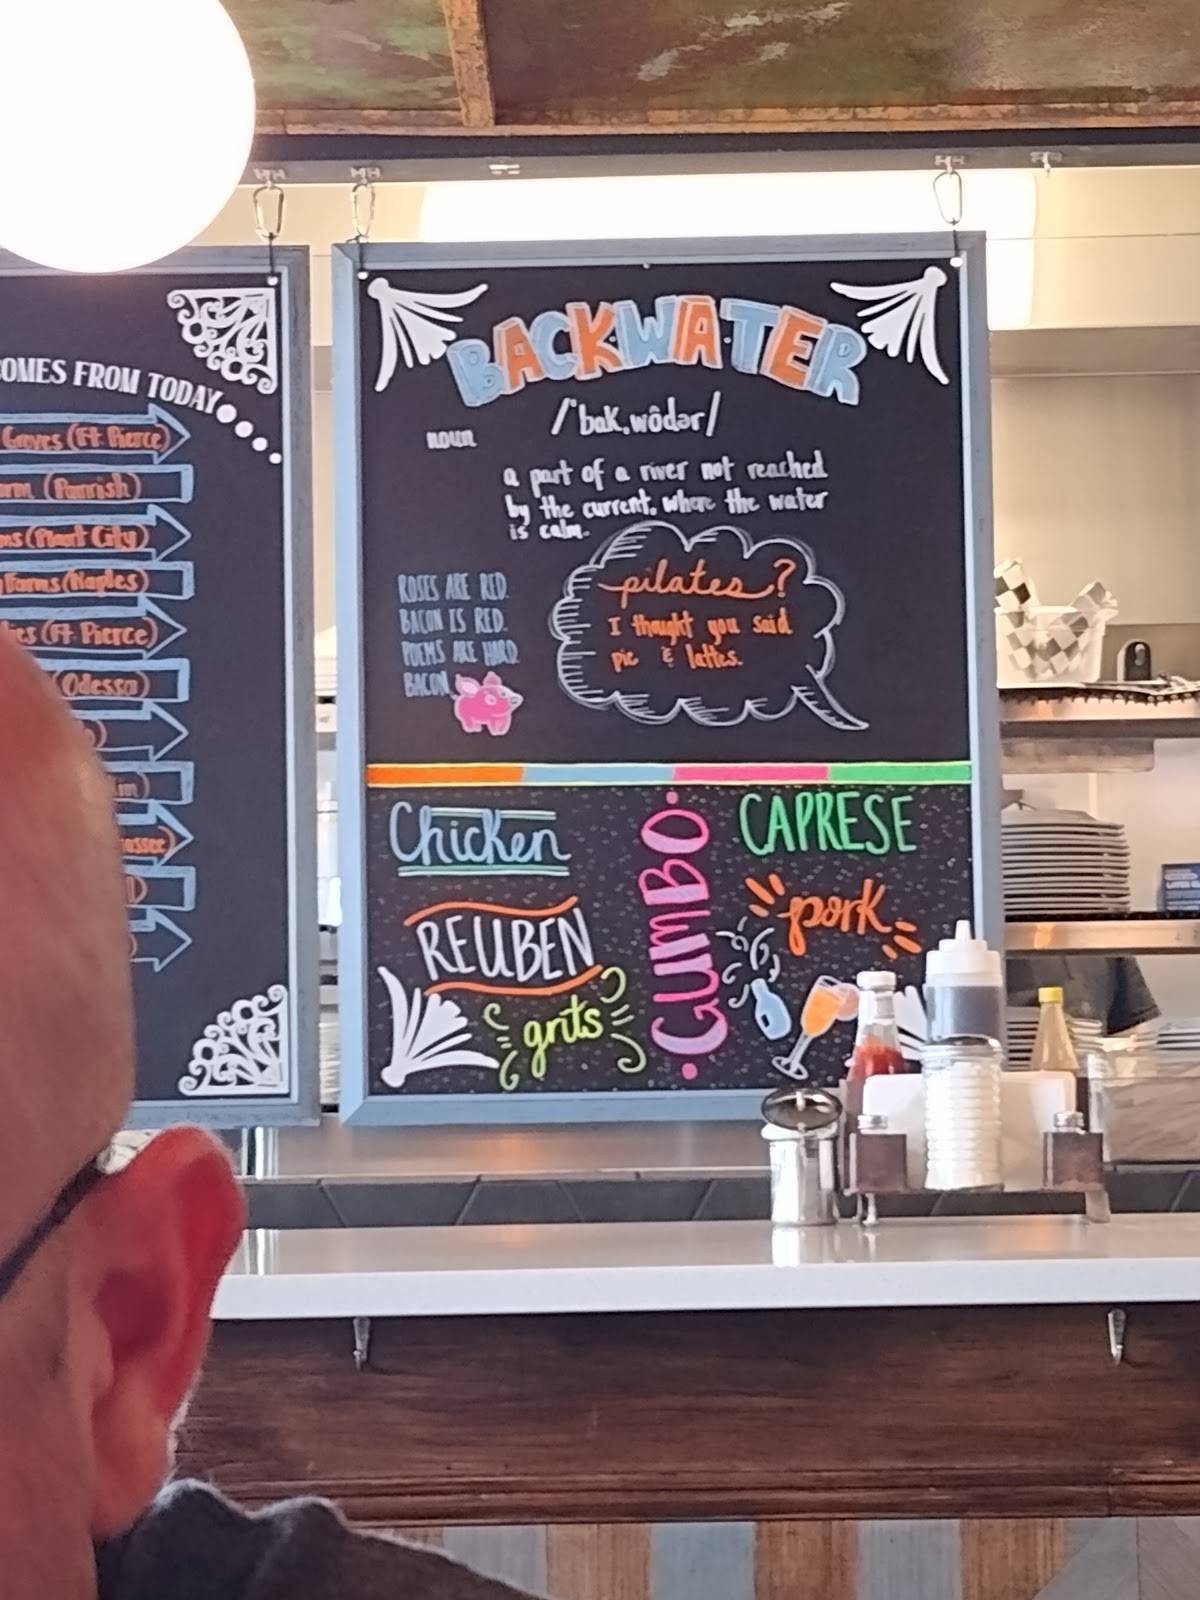 COMES FROM TODAY
(Ft. Pierce)
(Parrish)
(Plant City)
Farms (Naples)
(Ft. Pierce)
(Odessa)
BACKWATER
/ˈbak,wôdər/
noun
a part of a river not reached
by the current, where the water
is calm.
ROSES ARE RED.
BACON IS RED.
POEMS ARE HARD.
BACON.
pilates?
I thought you said
pie & lattes.
Chicken
REUBEN
grits
GUMBO
CAPRESE
pork